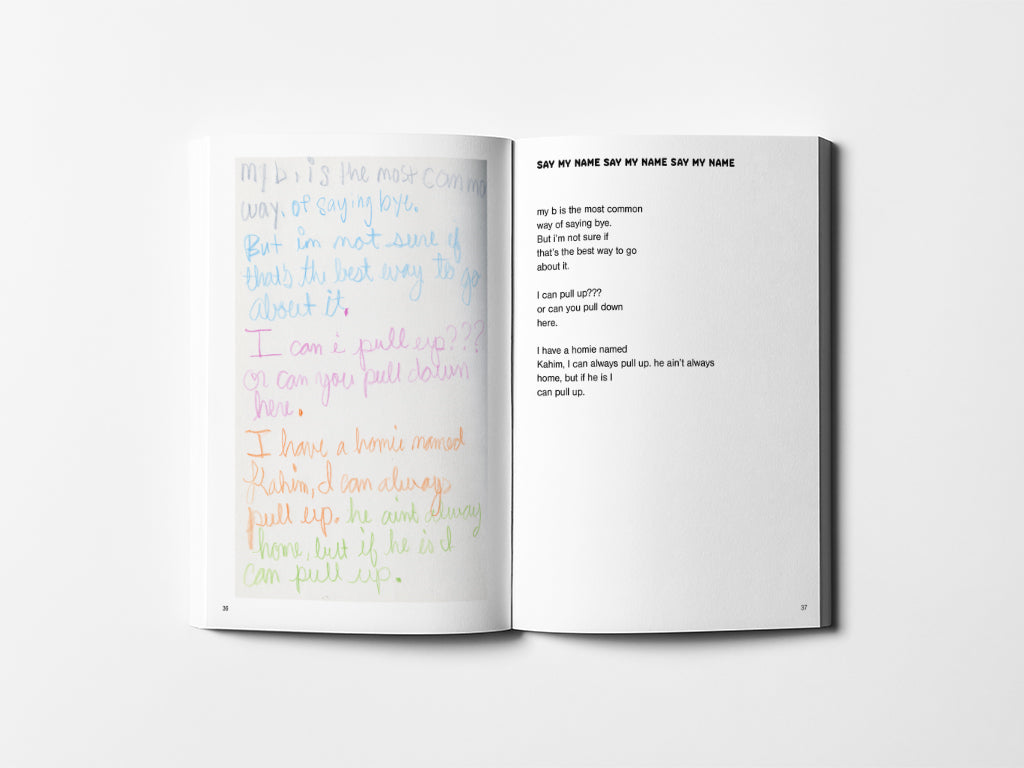 my b, is the most commo
way. of saying bye.
But im not sure if
that's the best way to go
about it.
I can i pull up???
or can you pull down
here.
I have a homie named
Kahim, I can always
pull up. he aint alway
home, but if he is I
can pull up.
36
SAY MY NAME SAY MY NAME SAY MY NAME
my b is the most common
way of saying bye.
But i'm not sure if
that's the best way to go
about it.
I can pull up???
or can you pull down
here.
I have a homie named
Kahim, I can always pull up. he ain't always
home, but if he is I
can pull up.
37